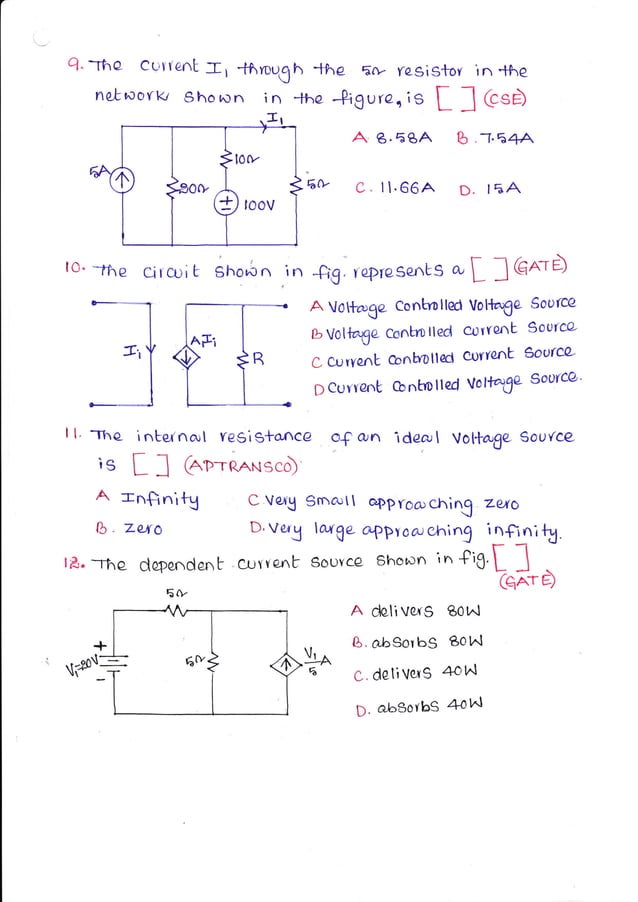 9. The current I1 through the 5Ω resistor in the
network shown in the figure, is [ ] (CSE)
I1
5A
20Ω
10Ω
100V
5Ω
A 8.58A B. 7.54A
C. 11.66A D. 15A
10. The circuit shown in fig. represents a [ ] (GATE)
Ii
AIi
R
A Voltage Controlled Voltage Source
B Voltage Controlled Current Source
C Current Controlled Current Source
D Current Controlled Voltage Source.
11. The internal resistance of an ideal Voltage Source
is [ ] (APTRANSCO)
A Infinity C Very small approaching zero
B. zero D. Very large approaching infinity.
12. The dependent current source shown in fig. [ ]
(GATE)
5Ω
V1=20V
+
-
5Ω
V1/5 A
A delivers 80W
B. absorbs 80W
C. delivers 40W
D. absorbs 40W